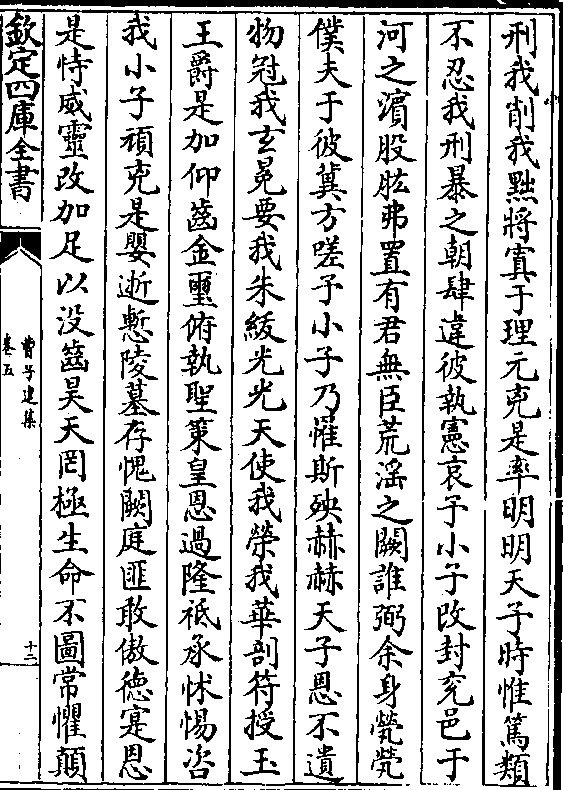 刑我削我黜將寘于理元兇是率明明天子時惟篤類
不忍我刑暴之朝肆違彼執憲哀予小子改封兖邑于
河之濵股肱弗置有君無臣荒滛之闕誰弼余身煢煢
僕夫于彼冀方嗟予小子乃罹斯殃赫赫天子恩不遺
物冠我玄冕要我朱紱光光天使我榮我華剖符授玉
王爵是加仰齒金璽俯執聖策皇恩過隆祗承怵惕咨
我小子頑兇是嬰逝慙陵墓存愧闕庭匪敢傲德寔恩
是恃威靈改加足以没齒昊天罔極生命不圖常懼顛
欽定四庫全書
曹子建集
卷五
十二